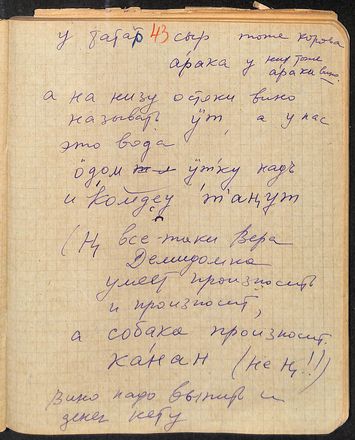 у татар 43 сыр тоже корова
арака у них тоже
арака вино.
а на низу остяки вино
называть ӱт, а у нас
это вода
ӧдом ӱтку надъ
и таңут
(Ң все-таки Вера
Демидовна
умеет произносить
и произносит,
а собака произносит.
канан (не ң!!)
Вино надо выпить и
денег нету